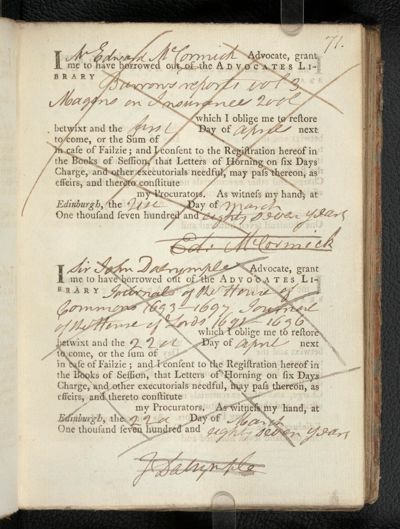 71.
I Mr Edward McCormick Advocate, grant
me to have borrowed out of the ADVOCATES LI-
BRARY Burrows reports vol 3
Magens on Insurance 2 vol
which I oblige me to restore
betwixt and the first Day of april next
to come, or the Sum of
in case of Failzie ; and I consent to the Registration hereof in
the Books of Session, that Letters of Horning on six Days
Charge, and other executorials needful, may pass thereon, as
effeirs, and thereto constitute
my Procurators. As witness my hand, at
Edinburgh, the 21st Day of March
One thousand seven hundred and eighty seven years
Ed: McCormick
I Sir John Dalrymple Advocate, grant
me to have borrowed out of the ADVOCATES LI-
BRARY Journals of the House of
Commons 1693-1697 Journal
of the House of Lords 1691-1696
which I oblige me to restore
betwixt and the 22d Day of april next
to come, or the sum of
in case of Failzie ; and I consent to the Registration hereof in
the Books of Session, that Letters of Horning on six Days
Charge, and other executorials needful, may pass thereon, as
effeirs, and thereto constitute
my Procurators. As witness my hand, at
Edinburgh, the 22d Day of March
One thousand seven hundred and eighty seven years
J Dalrymple